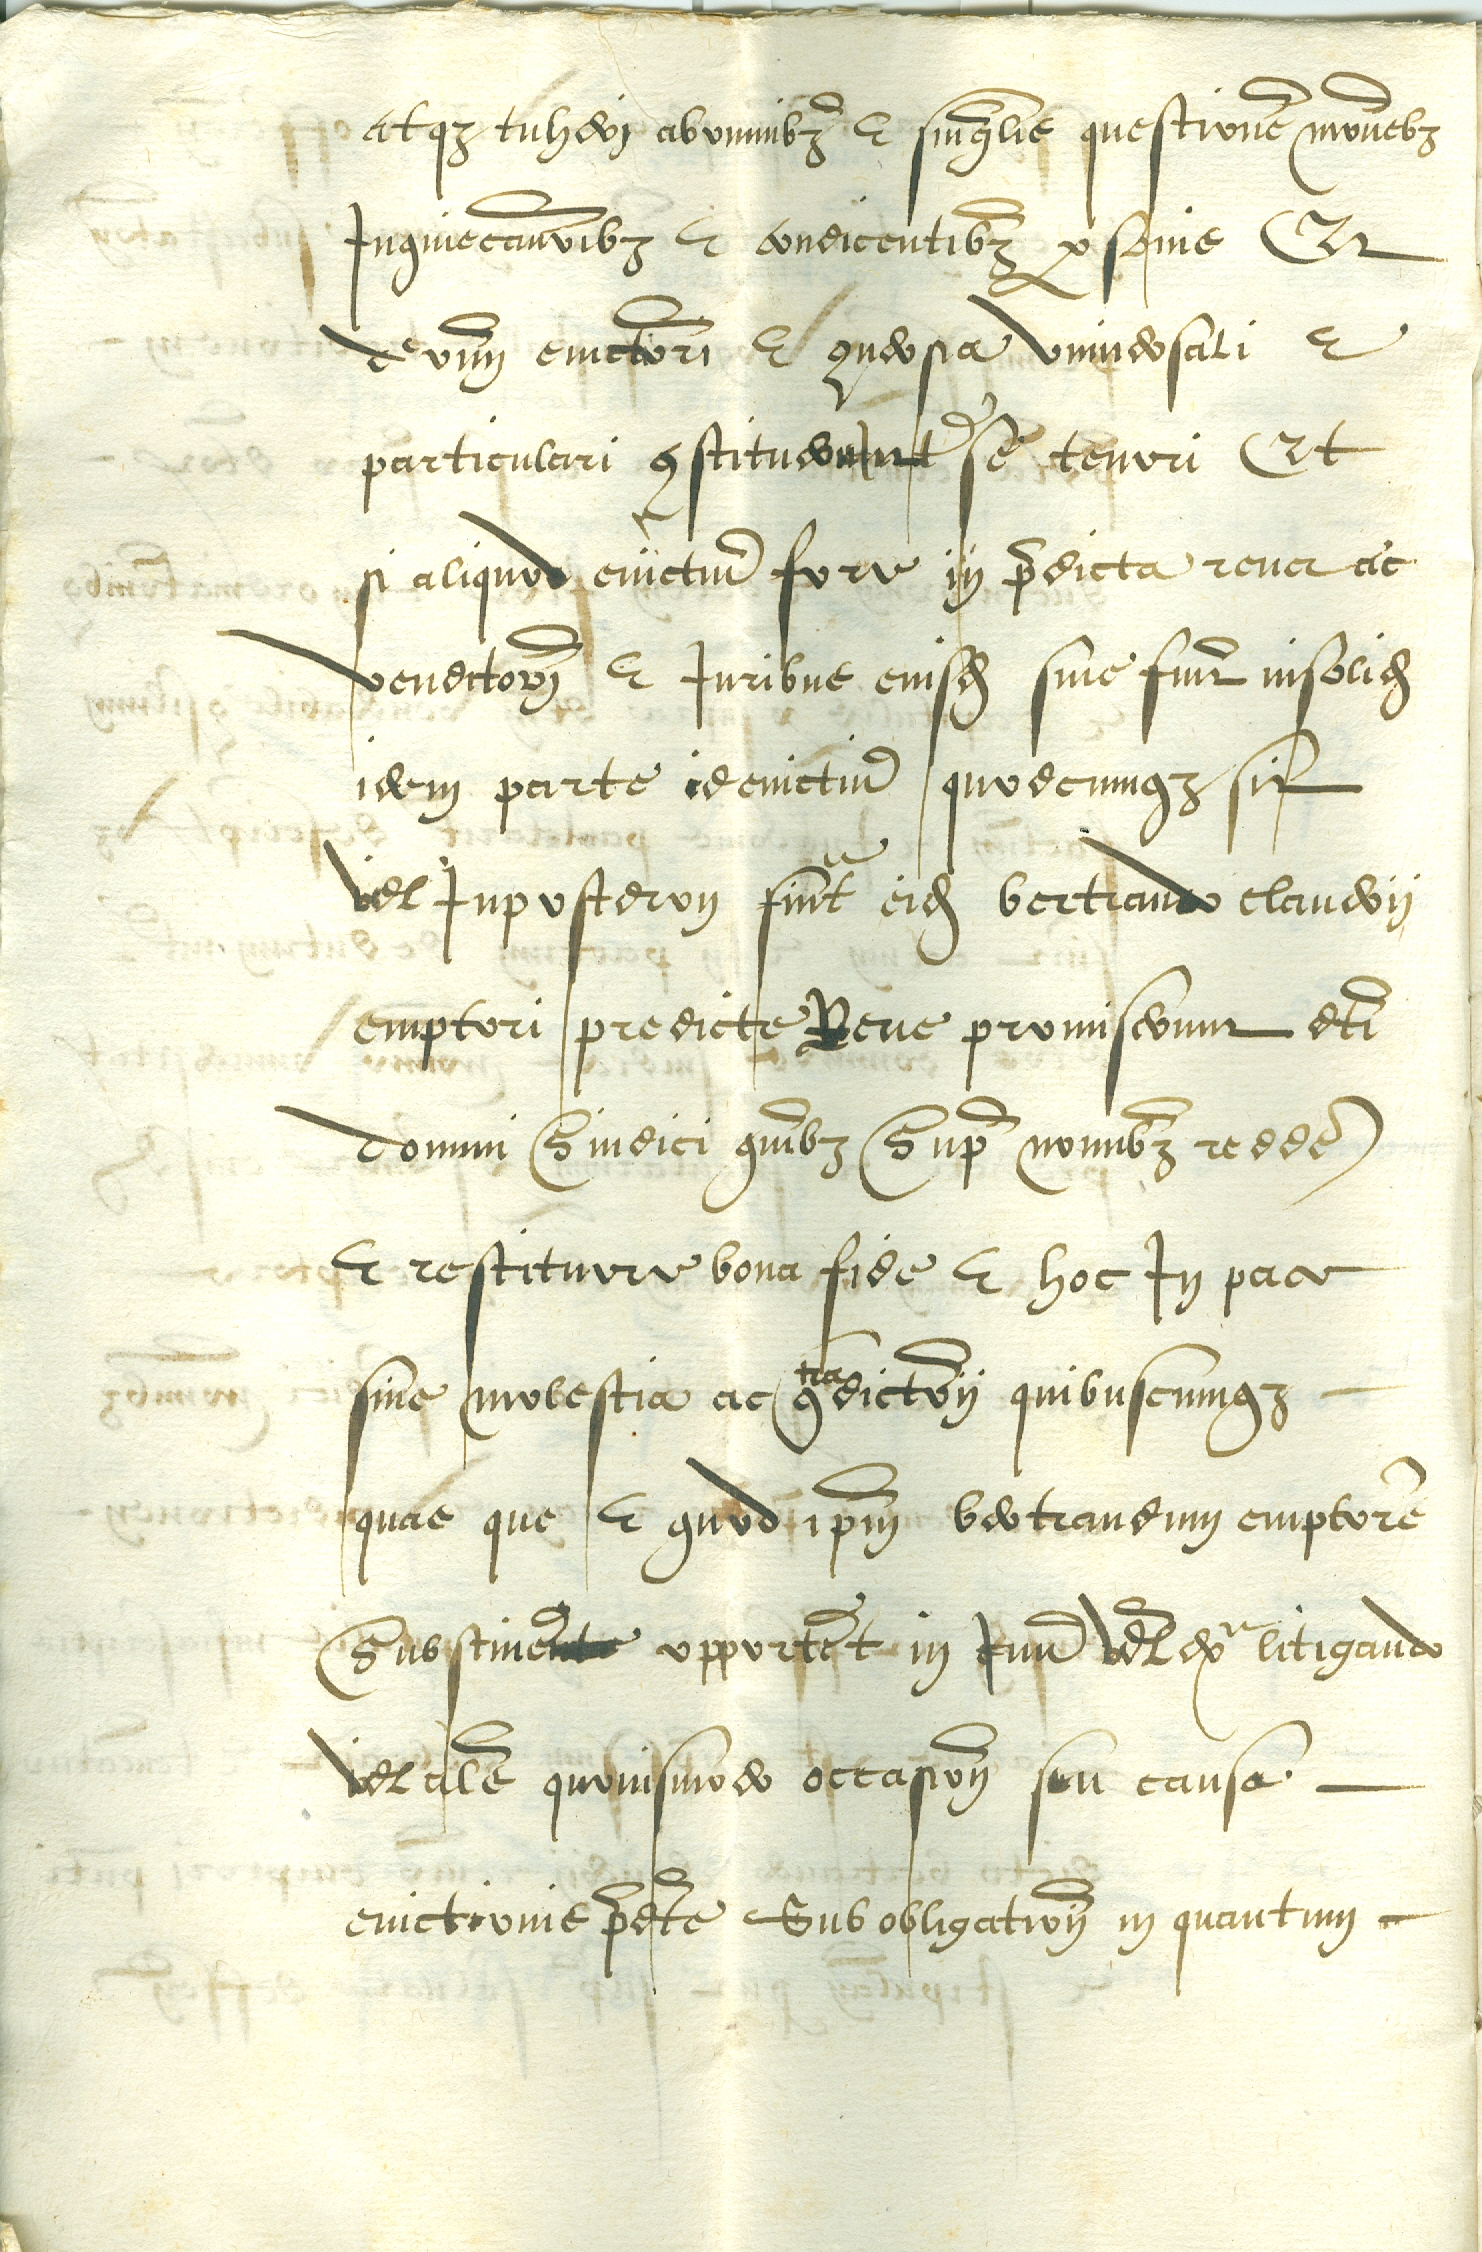 atqz tuheri ab omnibz et singlis questionē movēbz
Inquietantibz et contradicentibz psonis Et
de omī evictōi et guersia universali et
particulari gstituerunt se teneri Et
si aliquod evictū fore in pdicta rena ac
venditoēm et Juribus eiusd sive fuit insolid
idem parte id evictū quodcumqz sit
vel Inposterum sint eid bertrando claudii
emptori predicte Rene promiserunt dti
domini Sindici quibz Sup nominibz reddē
et restituere bona fide et hoc In pace
sine molestia ac gtradictōii quibuscumqz
quas que et quod ipm bertrandum emptorē
Substinere opportet in Jud vel ex litigando
vel als quovismodo occasiōn seu causa
evictionis pdcte Sub obligatiōn in quantum